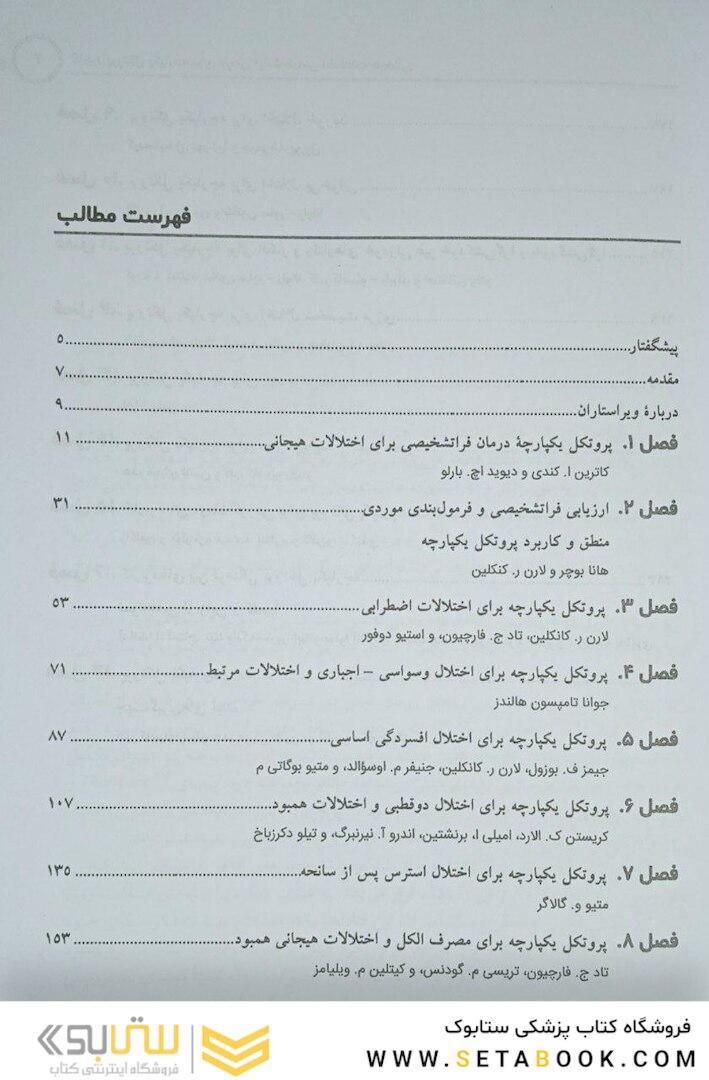 فهرست مطالب
پیشگفتار ۵
مقدمه ۷
دربارهٔ ویراستاران ۹
فصل ۱. پروتکل یکپارچهٔ درمان فراتشخیصی برای اختلالات هیجانی ۱۱
کاترین ا. کندی و دیوید اچ. بارلو
فصل ۲. ارزیابی فراتشخیصی و فرمول‌بندی موردی ۳۱
منطق و کاربرد پروتکل یکپارچه
هانا بوچر و لارن ر. کنکلین
فصل ۳. پروتکل یکپارچه برای اختلالات اضطرابی ۵۳
لارن ر. کانکلین، تاد ج. فارچیون، و استیو دوفور
فصل ۴. پروتکل یکپارچه برای اختلال وسواسی – اجباری و اختلالات مرتبط ۷۱
جوانا تامپسون هالندز
فصل ۵. پروتکل یکپارچه برای اختلال افسردگی اساسی ۸۷
جیمز ف. بوزول، لارن ر. کانکلین، جنیفر م. اوسؤالد، و متیو بوگاتی م
فصل ۶. پروتکل یکپارچه برای اختلال دوقطبی و اختلالات همبود ۱۰۷
کریستن ک. الارد، امیلی ا، برنشتین، اندرو آ. نیرنبرگ، و تیلو دکرزباخ
فصل ۷. پروتکل یکپارچه برای اختلال استرس پس از سانحه ۱۳۵
متیو و. گالاگر
فصل ۸. پروتکل یکپارچه برای مصرف الکل و اختلالات هیجانی همبود ۱۵۳
تاد ج. فارچیون، تریسی م. گودنس، و کیتلین م. ویلیامز
فروشگاه کتاب پزشکی ستابوک
WWW.SETABOOK.COM
ستابوک
فروشگاه اینترنتی کتاب